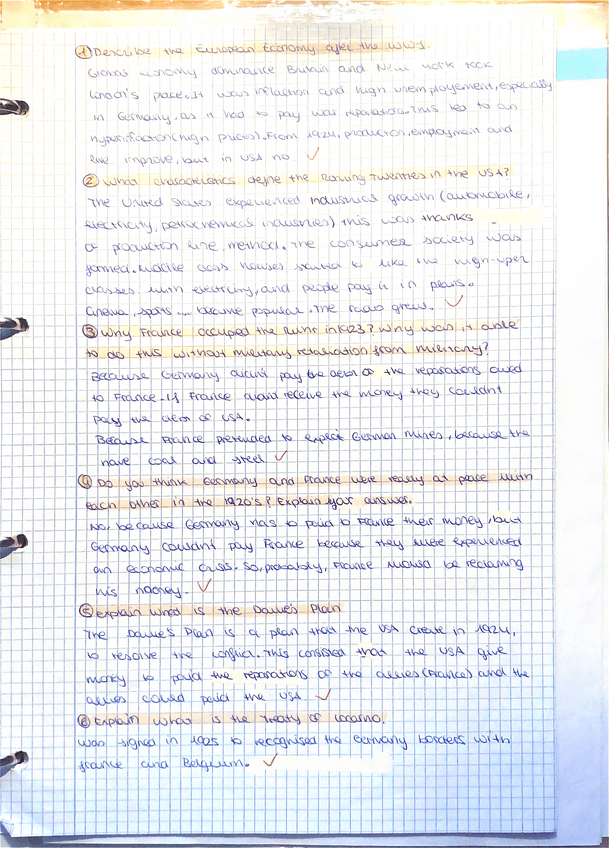 ① Describe the European Economy after the WW1.
Global economy dominance Britain and New York took
London's place. It was inflaction and high unemployement, especially
in Germany, as it had to pay war reparations. This led to an
hyperinflaction (high prices). From 1924, production, employment and
like improve, but in USA no.
② What characteristics define the Roaring Twenties in the USA?
The United States experienced industrial growth (automobile,
electricity, petrochemical industries) this was thanks
of production line method. The consumer society was
formed. Middle class houses started to like the high-uper
classes with electricity, and people pay it in plans.
Cinema, sports... became popular. The radio grew.
③ Why France occupied the Ruhr in 1923? Why was it able
to do this without military retaliation from military?
Because Germany didn't pay the debt of the reparations owed
to France. If France didn't receive the money they couldn't
pay the debt of USA.
Because France pretended to exploit German mines, because the
have coal and steel
④ Do you think Germany and France were really at peace with
each other in the 1920's? Explain your answer.
No, because Germany has to paid to France their money, but
Germany couldn't pay France because they were experienced
an economic crisis. So, probably, France would be reclaiming
his money.
⑤ Explain what is the Dawe's Plan
The Dawe's Plan is a plan that the USA create in 1924,
to resolve the conflict. This consisted that the USA give
money to paid the reparations of the allies (France) and the
allies could paid the USA.
⑥ Explain what is the Treaty of Locarno.
Was signed in 1925 to recognised the Germany borders with
france and Belgium.